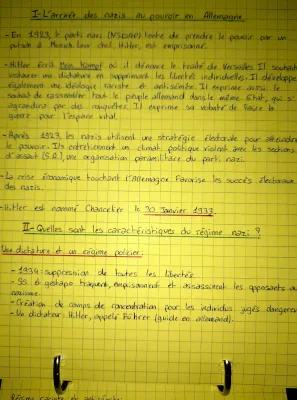 I-L'arrivée des nazis au pouvoir en Allemagne
- En 1923, le parti nazi (NSDAP) tente de prendre le pouvoir par un
putsch à Munich. Leur chef, Hitler, est emprisonné.
- Hitler écrit Mein Kampf où il dénonce le traité de Versailles. Il souhaite
instaurer une dictature en supprimant les libertés individuelles. Il développe
également une idéologie raciste et antisémite. Il exprime aussi le
souhait de rassembler tout le peuple allemand dans le même Etat, qui s'
agrandira par des conquêtes. Il exprime sa volonté de faire la
guerre pour l'espace vital.
- Après 1923, les nazis utilisent une stratégie électorale pour atteindre
le pouvoir. Ils entretiennent un climat politique violent avec les sections
d'assaut (S.A.), une organisation paramilitaire du parti nazi.
- La crise économique touchant l'Allemagne favorise les succès électoraux
des nazis.
- Hitler est nommé Chancelier le 30 Janvier 1933.
II- Quelles sont les caractéristiques du régime nazi ?
Une dictature et un régime policier:
- 1934: suppression de toutes les libertés.
- SS et gestapo traquent, emprisonnent et assassinent les opposants au
nazisme.
- Création de camps de concentration pour les individus jugés dangereux
- Un dictateur: Hitler, appelé Führer (guide en allemand).